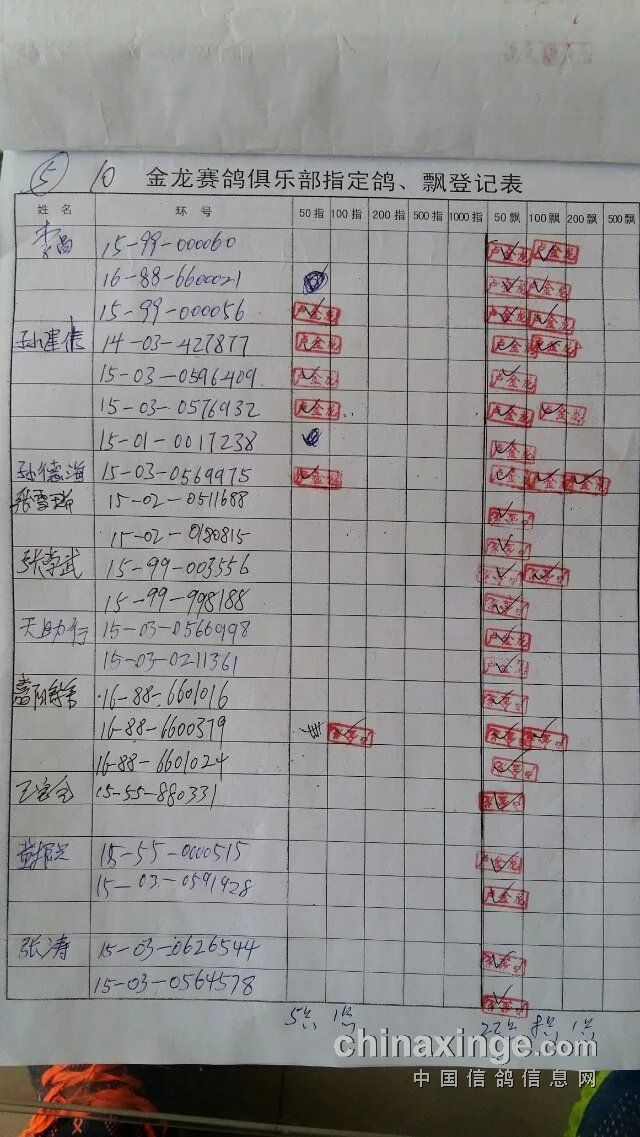 ⑤ 10 金龙赛鸽俱乐部指定鸽、飘登记表
姓名 环号 50指 100指 200指 500指 1000指 50飘 100飘 200飘 500飘
15-99-000060 卢金龙 卢金龙
16-88-6600021 卢金龙 卢金龙
15-99-000056 卢金龙 卢金龙 卢金龙
孙建信 14-03-427877 卢金龙 卢金龙 卢金龙
15-03-0596409 卢金龙 卢金龙
15-03-0576932 卢金龙 卢金龙 卢金龙
15-01-0017238 卢金龙
孙德海 15-03-0569975 卢金龙 卢金龙 卢金龙 卢金龙
15-02-0511688
15-02-0180815
张孝武 15-99-003556
15-99-998188
天助行 15-03-0566998 卢金龙
15-03-0211361 卢金龙
16-88-6601016
16-88-6600379
16-88-6601024
王宝全 15-55-880331
黄振兴 15-55-0000515 卢金龙
15-03-0591928 卢金龙
张涛 15-03-0626544
15-03-0564578
5只 1只 22只 8只 1只
chinaxinge.com
中国信鸽信息网